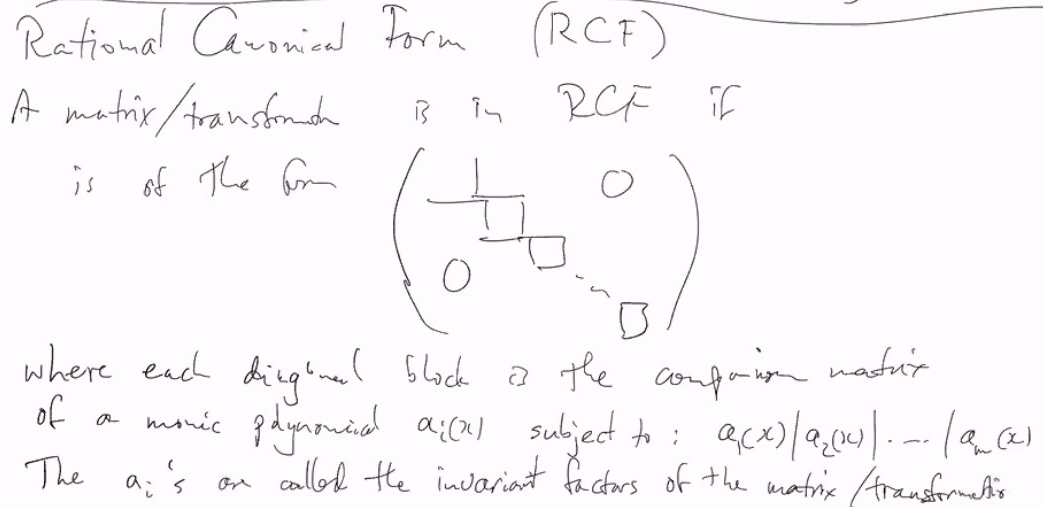 Rational Canonical Form (RCF)
A matrix/transformatn is in RCF if
is of the form
0
0
where each diagonal block is the companion matrix
of a monic polynomial aᵢ(x) subject to : a₁(x)|a₂(x)|. ... |aₘ(x)
The aᵢ's are called the invariant factors of the matrix/transformatio